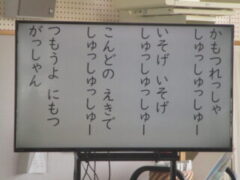 かもつれっしゃ
しゅっしゅっしゅー
いそげ いそげ
しゅっしゅっしゅー
こんどの えきで
しゅっしゅっしゅー
つもうよ にもつ
がっしゃん